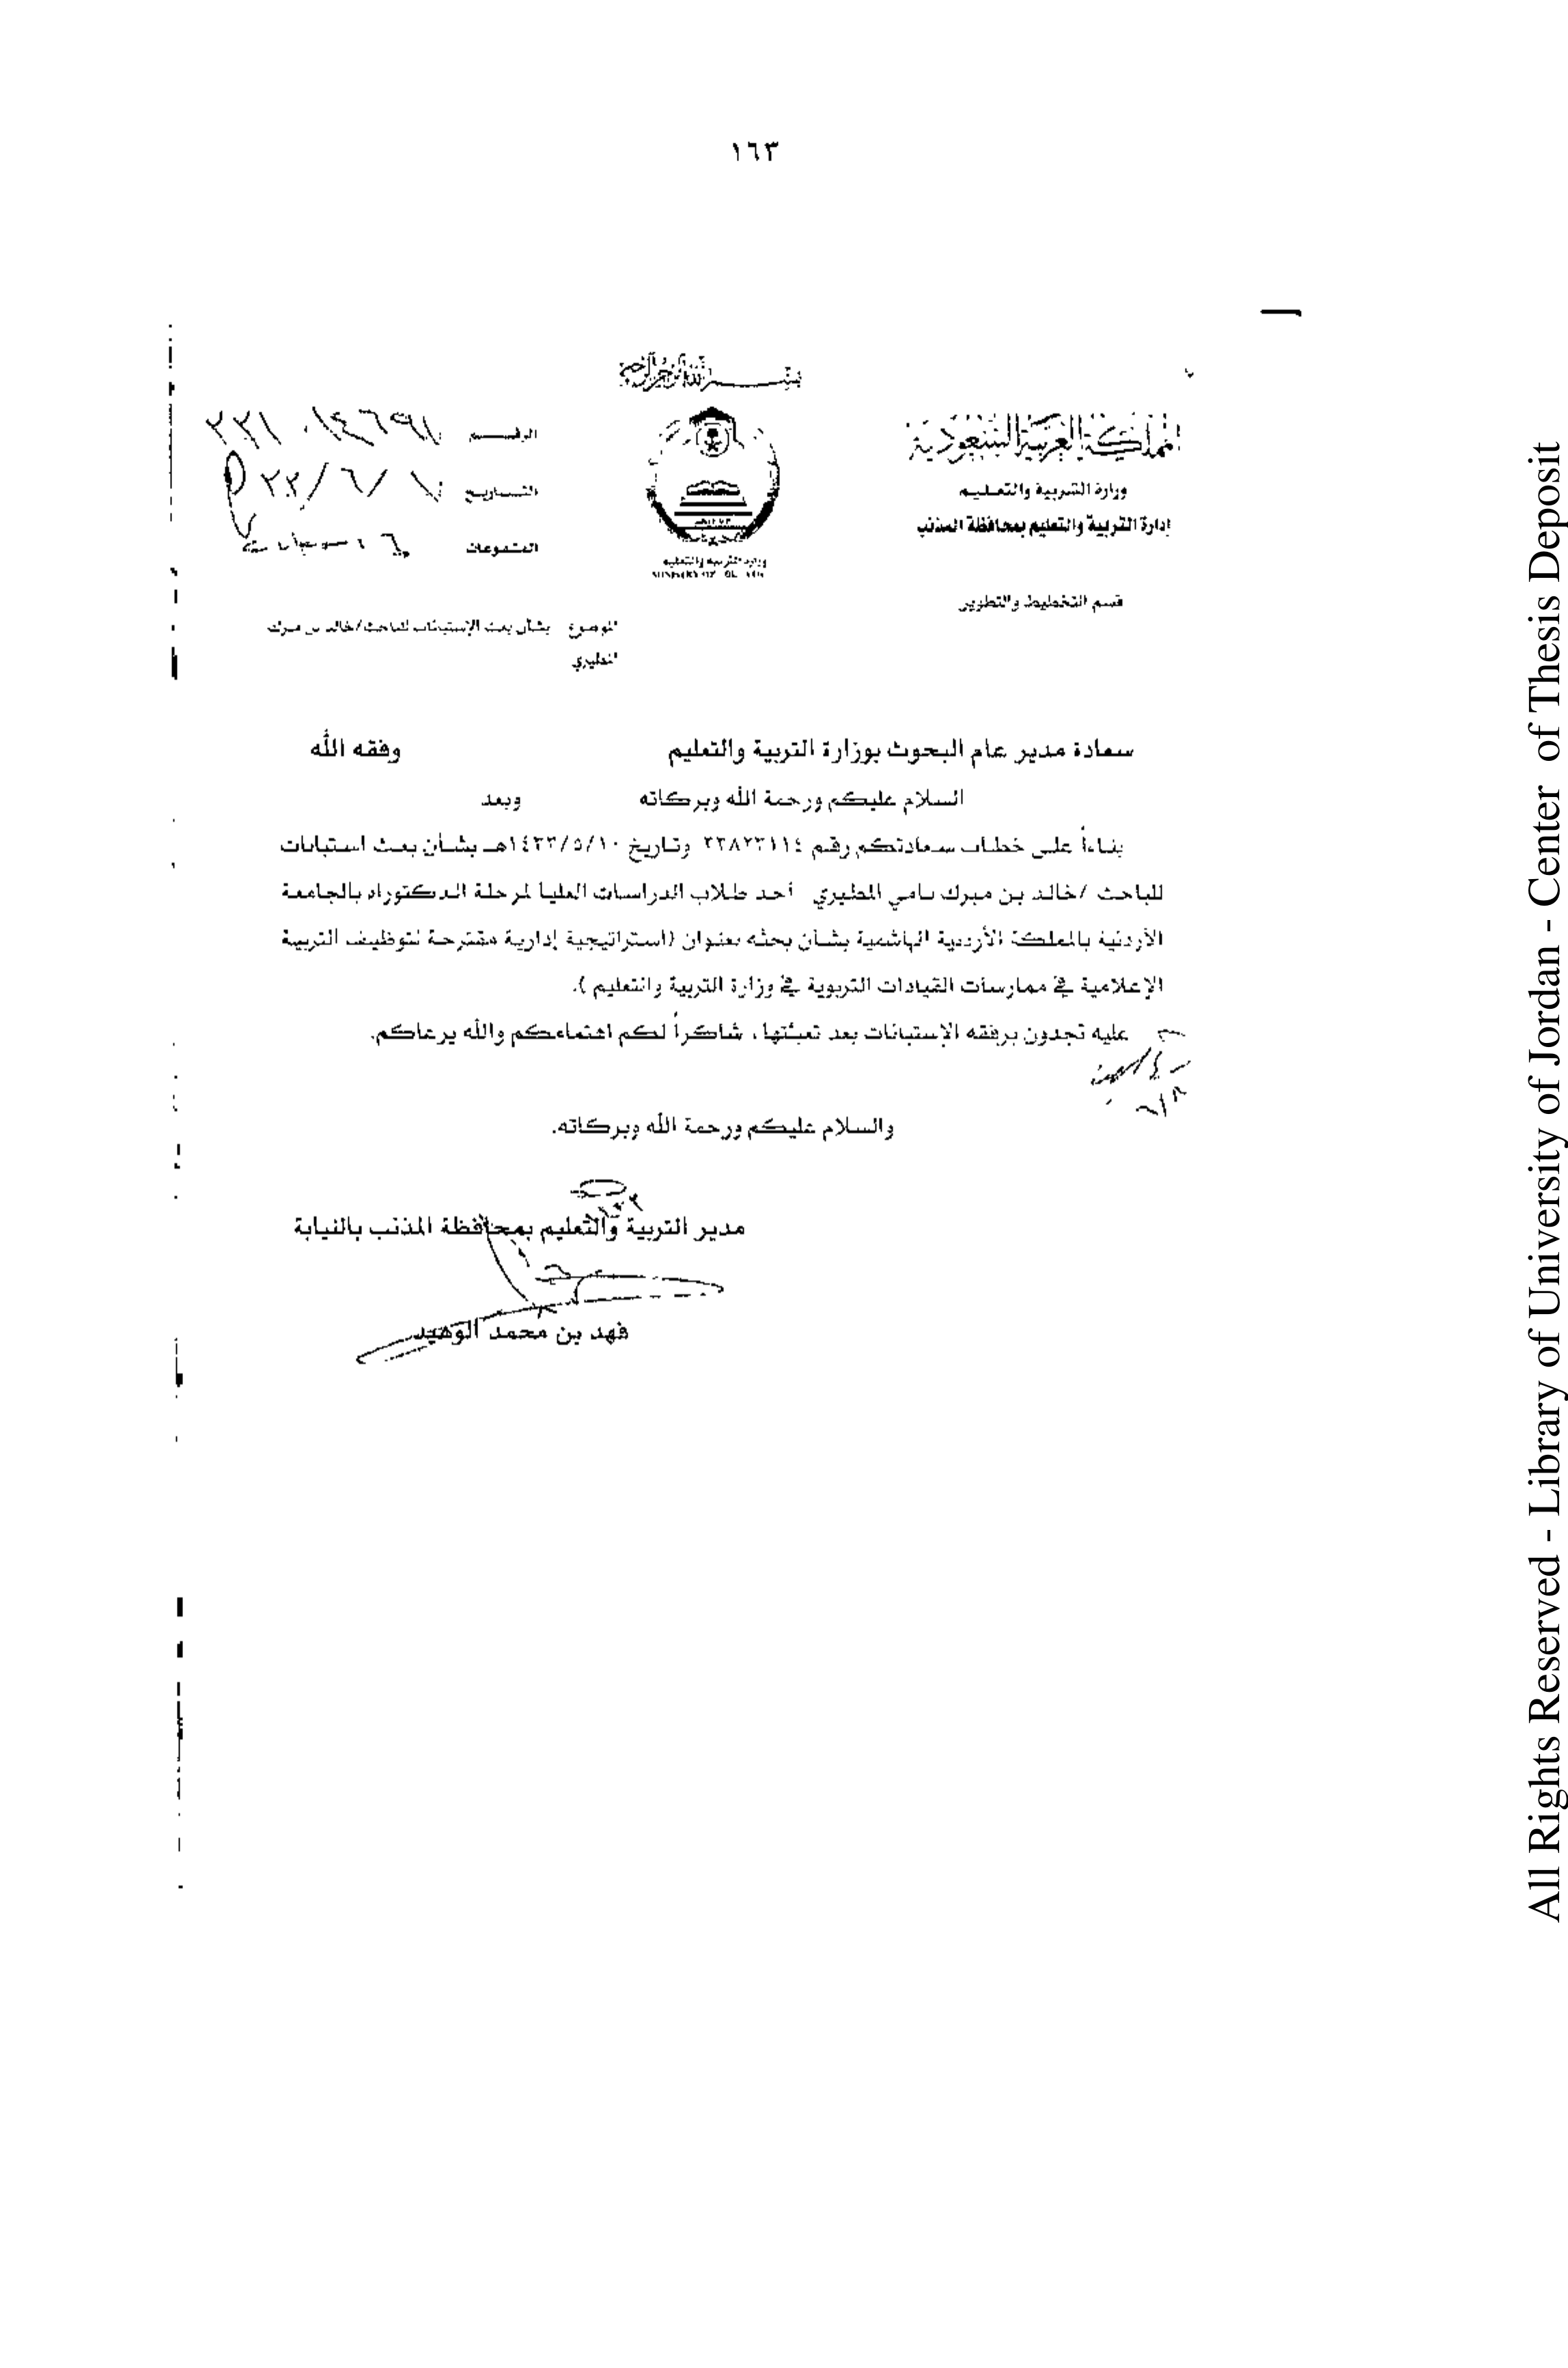 ١٦٣
بسم الله الرحمن الرحيم
المملكة العربية السعودية
وزارة التربية والتعليم
إدارة التربية والتعليم بمحافظة المذنب
قسم التخطيط والتطوير
وزارة التربية والتعليم
الرقم
التاريخ
المشفوعات
الموضوع بشأن بعث الإستبيانات للباحث/خالد بن مبرك
المطيري
سعادة مدير عام البحوث بوزارة التربية والتعليم وفقه الله
السلام عليكم ورحمة الله وبركاته وبعد
بناءاً على خطاب سعادتكم رقم وتاريخ ١٤٣٣/٥/١٠هـ بشأن بعث استبانات
للباحث /خالد بن مبرك أحد طلاب الدراسات العليا لمرحلة الدكتوراه بالجامعة
الأردنية بالمملكة الأردنية الهاشمية بشأن بحثه بعنوان (استراتيجية إدارية مقترحة لتوظيف التربية
الإعلامية في ممارسات القيادات التربوية في وزارة التربية والتعليم ).
عليه تجدون برفقه الإستبانات بعد تعبئتها، شاكراً لكم اهتمامكم والله يرعاكم.
والسلام عليكم ورحمة الله وبركاته.
مدير التربية والتعليم بمحافظة المذنب بالنيابة
فهد بن محمد الوهيد
All Rights Reserved - Library of University of Jordan - Center of Thesis Deposit